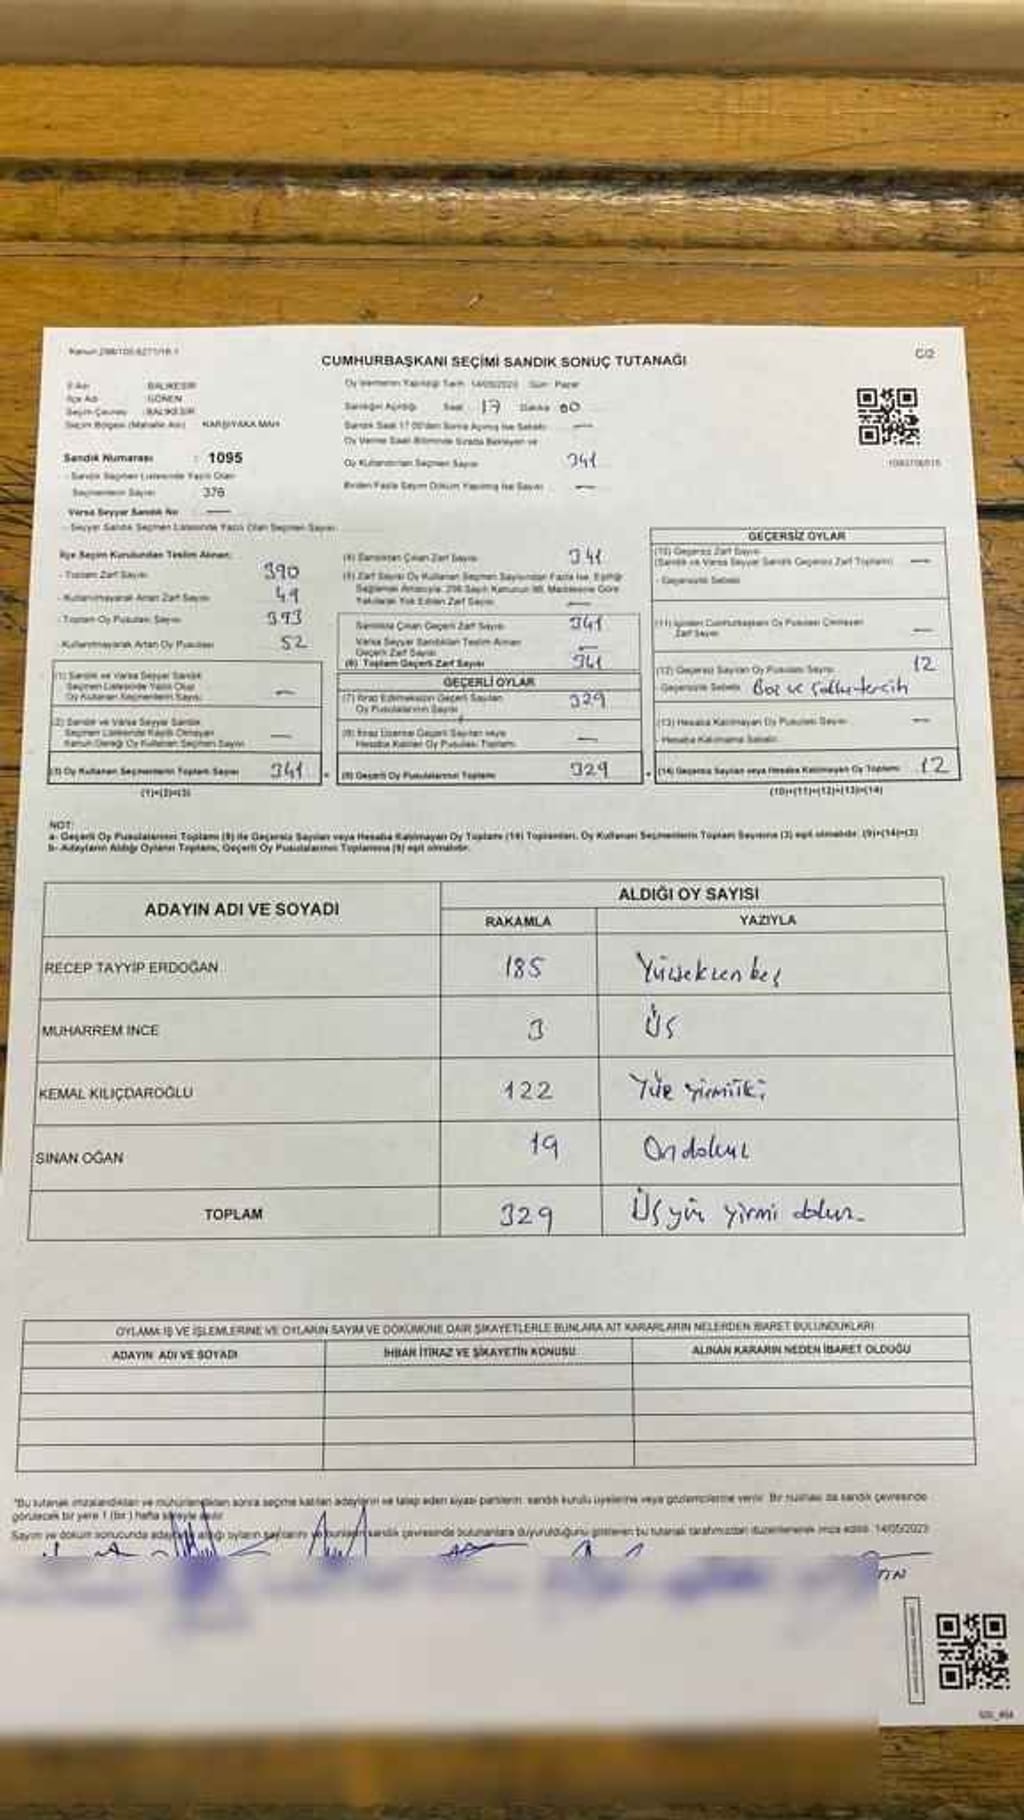 Kanun:298/105-6271/16.1
CUMHURBAŞKANI SEÇİMİ SANDIK SONUÇ TUTANAĞI
C/2
İl Adı BALIKESİR
İlçe Adı GÖNEN
Seçim Çevresi BALIKESİR
Seçim Bölgesi (Mahalle Adı) KARŞIYAKA MAH
Sandık Numarası : 1095
- Sandık Seçmen Listesinde Yazılı Olan
Seçmenlerin Sayısı 376
Varsa Seyyar Sandık No —
- Seyyar Sandık Seçmen Listesinde Yazılı Olan Seçmen Sayısı
Oy Verme 14/05/2023 Gün: Pazar
Sandığın Açıldığı Saat 17 Dakika 00
Sandık Saat 17.00'den Sonra Açılmış İse Sebebi —
Oy Verme Saati Bitiminde Sırada Bekleyen ve
Oy Kullandırılan Seçmen Sayısı 341
Birden Fazla Sayım Döküm Yapılmış İse Sayısı —
İlçe Seçim Kurulundan Teslim Alınan:
- Toplam Zarf Sayısı 390
- Kullanılmayarak Artan Zarf Sayısı 49
- Toplam Oy Pusulası Sayısı 393
- Kullanılmayarak Artan Oy Pusulası 52
(1) Sandık ve Varsa Seyyar Sandık
Seçmen Listesinde Yazılı Olup
Oy Kullanan Seçmenlerin Sayısı —
(2) Sandık ve Varsa Seyyar Sandık
Seçmen Listesinde Kayıtlı Olmayan
Kanun Gereği Oy Kullanan Seçmen Sayısı —
(3) Oy Kullanan Seçmenlerin Toplam Sayısı 341
(1)+(2)=(3)
(4) Sandıktan Çıkan Zarf Sayısı 341
(5) Zarf Sayısı Oy Kullanan Seçmen Sayısından Fazla İse, Eşitliği
Sağlamak Amacıyla, 298 Sayılı Kanunun 98. Maddesine Göre
Yakılarak Yok Edilen Zarf Sayısı —
Sandıkta Çıkan Geçerli Zarf Sayısı 341
Varsa Seyyar Sandıktan Teslim Alınan
Geçerli Zarf Sayısı —
(6) Toplam Geçerli Zarf Sayısı 341
GEÇERLİ OYLAR
(7) İtiraz Edilmeksizin Geçerli Sayılan
Oy Pusulalarının Sayısı 329
(8) İtiraz Üzerine Geçerli Sayılan veya
Hesaba Katılan Oy Pusulası Toplamı —
(9) Geçerli Oy Pusulalarının Toplamı 329
GEÇERSİZ OYLAR
(10) Geçersiz Zarf Sayısı
(Sandık ve Varsa Seyyar Sandık Geçersiz Zarf Toplamı) —
- Geçersizlik Sebebi
(11) İçinden Cumhurbaşkanı Oy Pusulası Çıkmayan
Zarf Sayısı —
(12) Geçersiz Sayılan Oy Pusulası Sayısı 12
- Geçersizlik Sebebi Boş ve
(13) Hesaba Katılmayan Oy Pusulası Sayısı —
- Hesaba Katılmama Sebebi
(14) Geçersiz Sayılan veya Hesaba Katılmayan Oy Toplamı 12
(10)+(11)+(12)+(13)=(14)
NOT:
a- Geçerli Oy Pusulalarının Toplamı (9) ile Geçersiz Sayılan veya Hesaba Katılmayan Oy Toplamı (14) Toplamları, Oy Kullanan Seçmenlerin Toplam Sayısına (3) eşit olmalıdır. (9)+(14)=(3)
b- Adayların Aldığı Oyların Toplamı, Geçerli Oy Pusulalarının Toplamına (9) eşit olmalıdır.
ADAYIN ADI VE SOYADI ALDIĞI OY SAYISI
RAKAMLA YAZIYLA
RECEP TAYYİP ERDOĞAN 185 Yüzseksenbeş
MUHARREM İNCE 3 Üç
KEMAL KILIÇDAROĞLU 122 Yüz yirmiiki
SİNAN OĞAN 19 Ondokuz
TOPLAM 329 Üçyüz yirmi dokuz
OYLAMA İŞ VE İŞLEMLERİNE VE OYLARIN SAYIM VE DÖKÜMÜNE DAİR ŞİKAYETLERLE BUNLARA AİT KARARLARIN NELERDEN İBARET BULUNDUKLARI
ADAYIN ADI VE SOYADI İHBAR İTİRAZ VE ŞİKAYETİN KONUSU ALINAN KARARIN NEDEN İBARET OLDUĞU
*Bu tutanak imzalandıktan ve mühürlendikten sonra seçime katılan adayların ve talep eden siyasi partilerin sandık kurulu üyelerine veya gözlemcilerine verilir. Bir nüshası da sandık çevresinde
görülecek bir yere 1 (bir) hafta süreyle asılır.
Sayım ve döküm sonucunda adayların aldığı oyların sayılarını ve bunların sandık çevresinde bulunanlara duyurulduğunu gösteren bu tutanak tarafımızdan düzenlenerek imza edildi. 14/05/2023